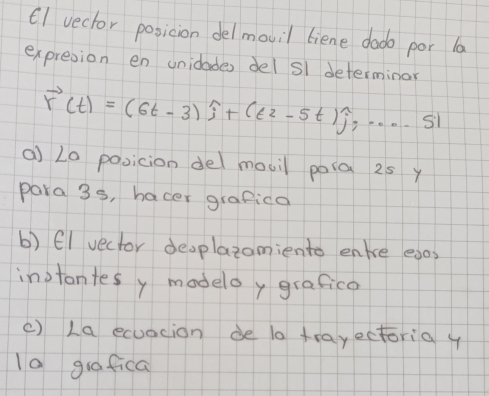 El vector posicion del movil tiene dado por la
expresion en unidades del SI determinar
r⃗(t) = (6t - 3) ĵ + (t2 - 5t) ĵ, ..... SI
a) La posicion del movil para 2s y
para 3s, hacer grafico
b) El vector desplazamiento entre esos
instantes y modelo y grafico
c) La ecuacion de la trayectoria y
la grafica